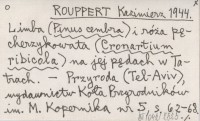 ROUPPERT Kazimierz 1944.
Limba (Pinus cembra) i róża pę-
cherzykowata (Cronartium
ribicola) na jej pędach w Ta-
trach. — Przyroda (Tel-Aviv),
wydawnictwo Koła Przyrodników
im. M. Kopernika nr. 5, s. 62-68.